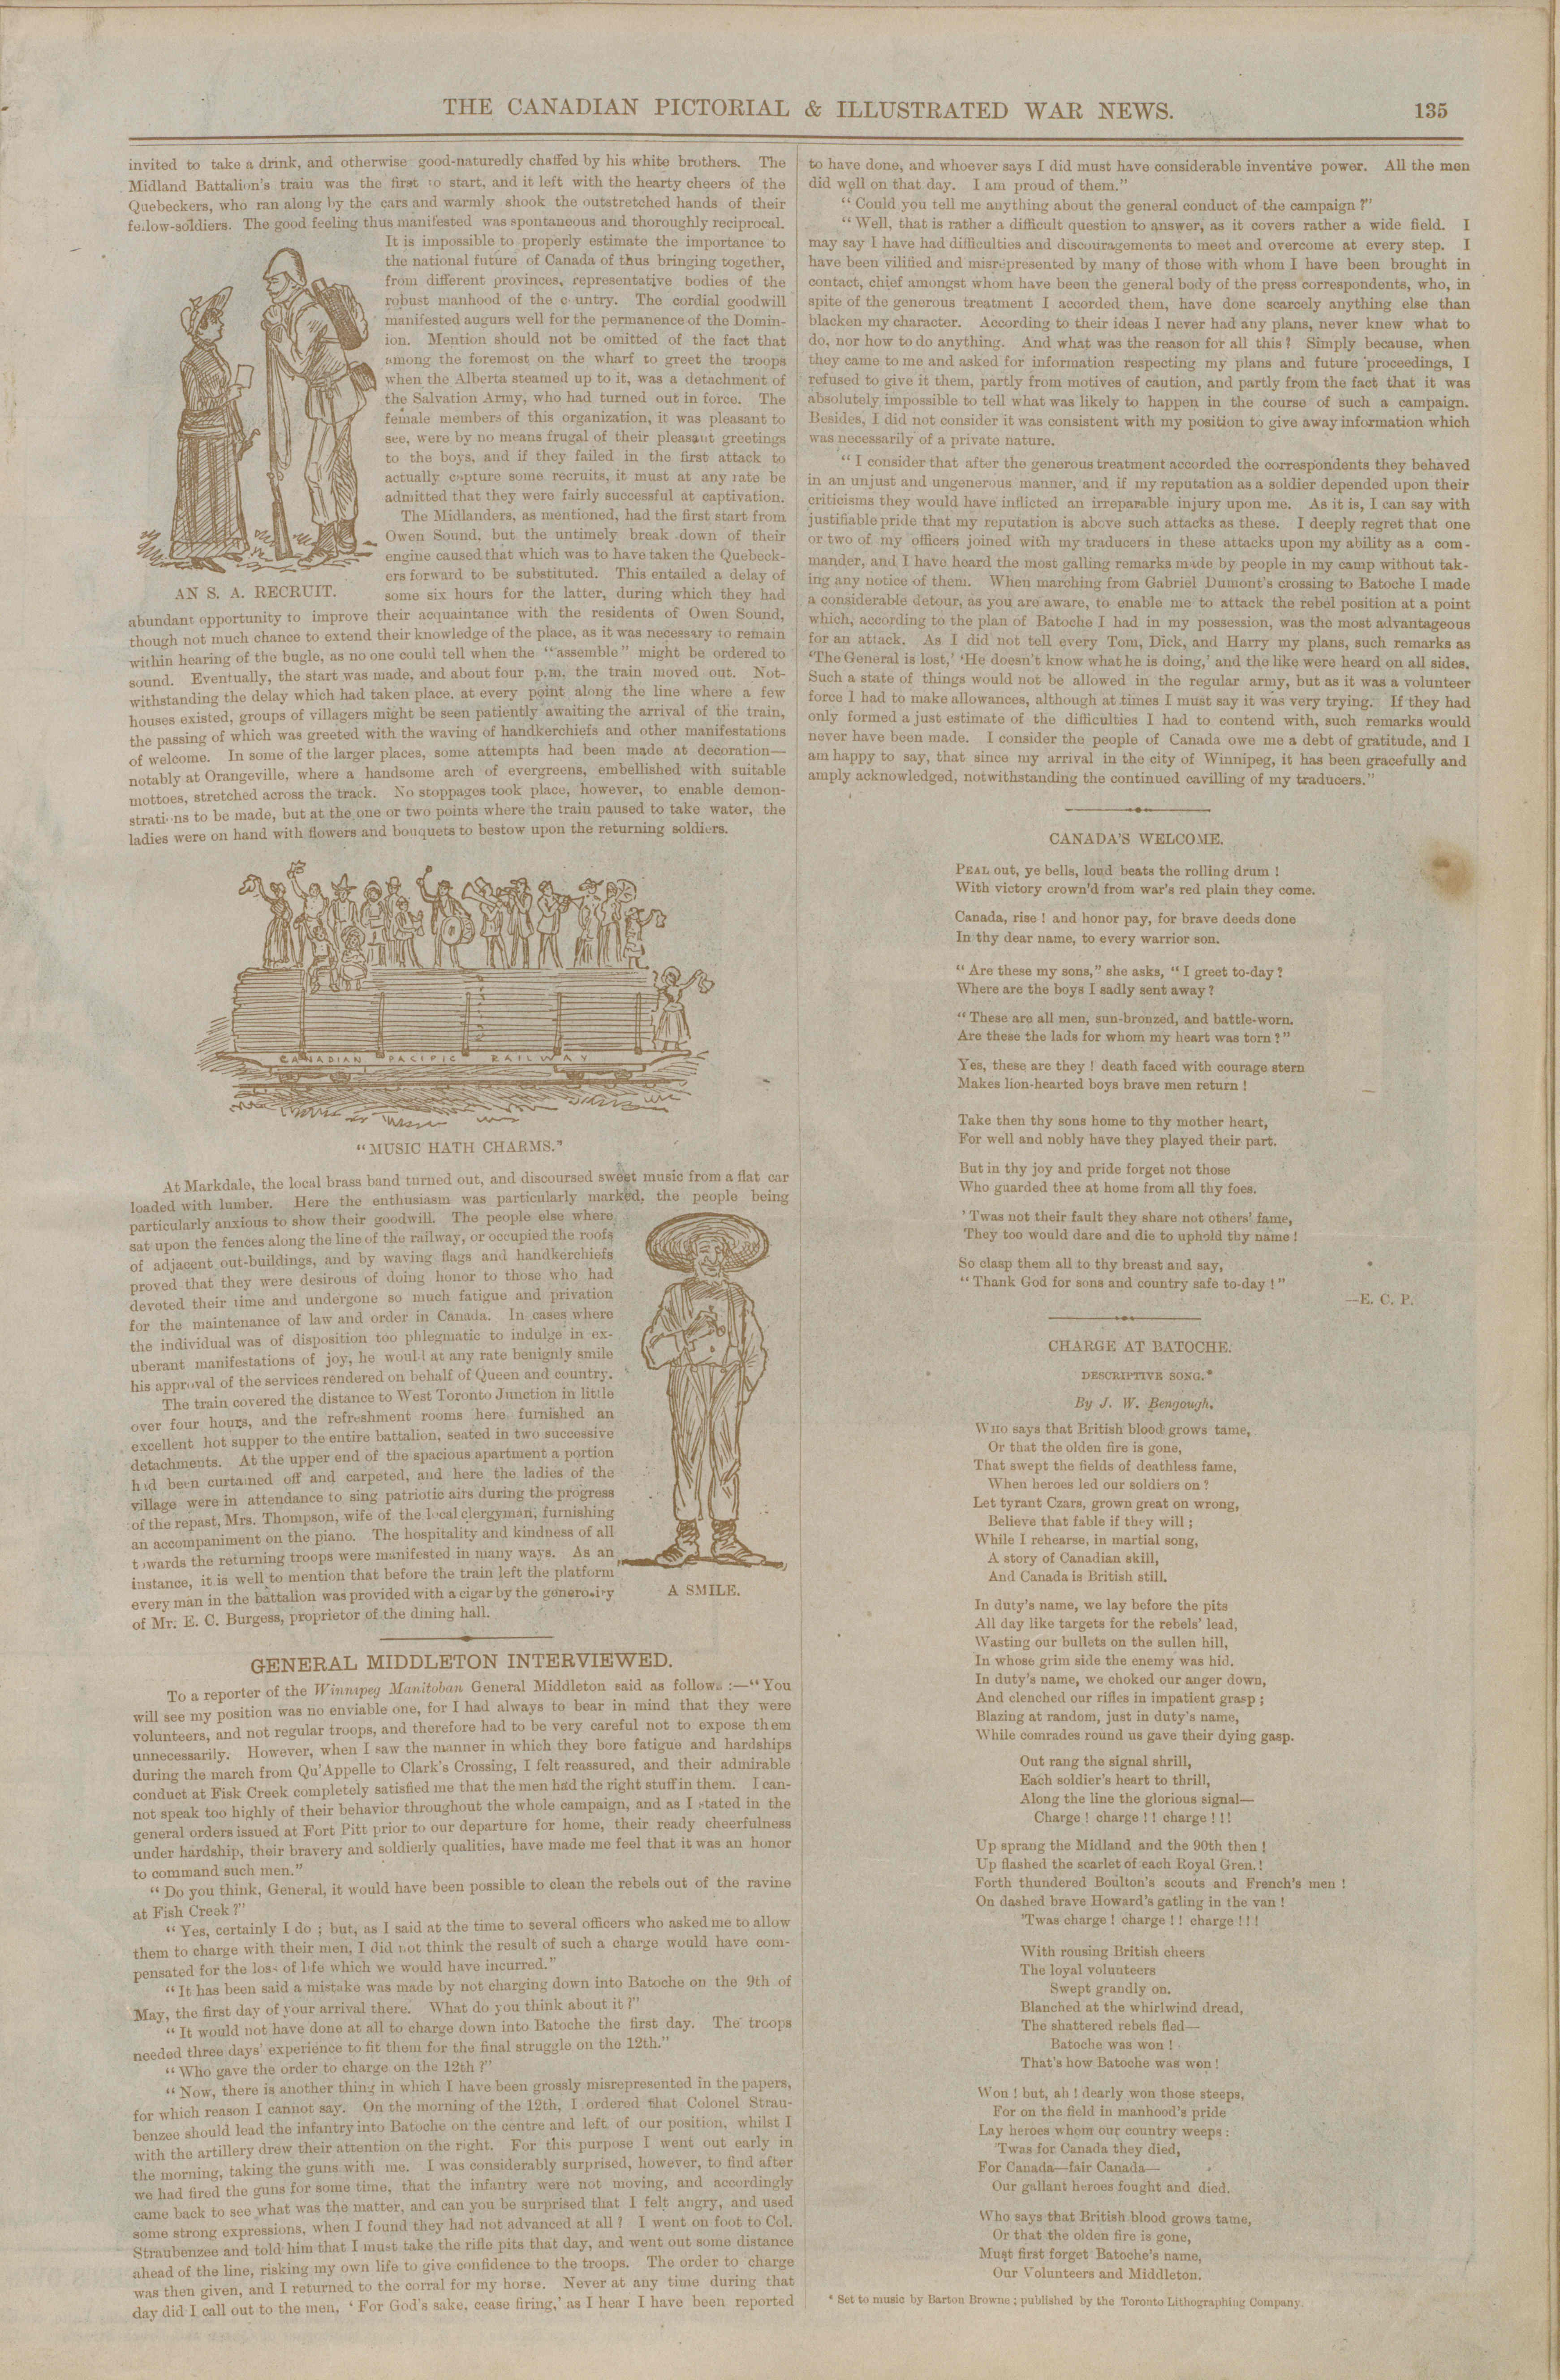 THE CANADIAN PICTORIAL & ILLUSTRATED WAR NEWS.
135
invited to take a drink, and otherwise good-naturedly chaffed by his white brothers. The
Midland Battalion's train was the first to start, and it left with the hearty cheers of the
Quebeckers, who ran along by the cars and warmly shook the outstretched hands of their
fellow-soldiers. The good feeling thus manifested was spontaneous and thoroughly reciprocal.
It is impossible to properly estimate the importance to
the national future of Canada of thus bringing together,
from different provinces, representative bodies of the
robust manhood of the country. The cordial goodwill
manifested augurs well for the permanence of the Domin-
ion. Mention should not be omitted of the fact that
among the foremost on the wharf to greet the troops
when the Alberta steamed up to it, was a detachment of
the Salvation Army, who had turned out in force. The
female members of this organization, it was pleasant to
see, were by no means frugal of their pleasant greetings
to the boys, and if they failed in the first attack to
actually capture some recruits, it must at any rate be
admitted that they were fairly successful at captivation.
The Midlanders, as mentioned, had the first start from
Owen Sound, but the untimely break down of their
engine caused that which was to have taken the Quebeck-
ers forward to be substituted. This entailed a delay of
AN S. A. RECRUIT.
some six hours for the latter, during which they had
abundant opportunity to improve their acquaintance with the residents of Owen Sound,
though not much chance to extend their knowledge of the place, as it was necessary to remain
within hearing of the bugle, as no one could tell when the "assemble" might be ordered to
sound. Eventually, the start was made, and about four p.m. the train moved out. Not-
withstanding the delay which had taken place, at every point along the line where a few
houses existed, groups of villagers might be seen patiently awaiting the arrival of the train,
the passing of which was greeted with the waving of handkerchiefs and other manifestations
of welcome. In some of the larger places, some attempts had been made at decoration—
notably at Orangeville, where a handsome arch of evergreens, embellished with suitable
mottoes, stretched across the track. No stoppages took place, however, to enable demon-
strations to be made, but at the one or two points where the train paused to take water, the
ladies were on hand with flowers and bouquets to bestow upon the returning soldiers.
CANADIAN PACIFIC RAILWAY
"MUSIC HATH CHARMS."
At Markdale, the local brass band turned out, and discoursed sweet music from a flat car
loaded with lumber. Here the enthusiasm was particularly marked, the people being
particularly anxious to show their goodwill. The people else where
sat upon the fences along the line of the railway, or occupied the roofs
of adjacent out-buildings, and by waving flags and handkerchiefs
proved that they were desirous of doing honor to those who had
devoted their time and undergone so much fatigue and privation
for the maintenance of law and order in Canada. In cases where
the individual was of disposition too phlegmatic to indulge in ex-
uberant manifestations of joy, he would at any rate benignly smile
his approval of the services rendered on behalf of Queen and country.
The train covered the distance to West Toronto Junction in little
over four hours, and the refreshment rooms here furnished an
excellent hot supper to the entire battalion, seated in two successive
detachments. At the upper end of the spacious apartment a portion
had been curtained off and carpeted, and here the ladies of the
village were in attendance to sing patriotic airs during the progress
of the repast, Mrs. Thompson, wife of the local clergyman, furnishing
an accompaniment on the piano. The hospitality and kindness of all
towards the returning troops were manifested in many ways. As an
instance, it is well to mention that before the train left the platform
every man in the battalion was provided with a cigar by the generosity
of Mr. E. C. Burgess, proprietor of the dining hall.
A SMILE.
GENERAL MIDDLETON INTERVIEWED.
To a reporter of the Winnipeg Manitoban General Middleton said as follows :—"You
will see my position was no enviable one, for I had always to bear in mind that they were
volunteers, and not regular troops, and therefore had to be very careful not to expose them
unnecessarily. However, when I saw the manner in which they bore fatigue and hardships
during the march from Qu'Appelle to Clark's Crossing, I felt reassured, and their admirable
conduct at Fisk Creek completely satisfied me that the men had the right stuff in them. I can-
not speak too highly of their behavior throughout the whole campaign, and as I stated in the
general orders issued at Fort Pitt prior to our departure for home, their ready cheerfulness
under hardship, their bravery and soldierly qualities, have made me feel that it was an honor
to command such men."
"Do you think, General, it would have been possible to clean the rebels out of the ravine
at Fish Creek?"
"Yes, certainly I do ; but, as I said at the time to several officers who asked me to allow
them to charge with their men, I did not think the result of such a charge would have com-
pensated for the loss of life which we would have incurred."
"It has been said a mistake was made by not charging down into Batoche on the 9th of
May, the first day of your arrival there. What do you think about it?"
"It would not have done at all to charge down into Batoche the first day. The troops
needed three days' experience to fit them for the final struggle on the 12th."
"Who gave the order to charge on the 12th?"
"Now, there is another thing in which I have been grossly misrepresented in the papers,
for which reason I cannot say. On the morning of the 12th, I ordered that Colonel Strau-
benzee should lead the infantry into Batoche on the centre and left of our position, whilst I
with the artillery drew their attention on the right. For this purpose I went out early in
the morning, taking the guns with me. I was considerably surprised, however, to find after
we had fired the guns for some time, that the infantry were not moving, and accordingly
came back to see what was the matter, and can you be surprised that I felt angry, and used
some strong expressions, when I found they had not advanced at all? I went on foot to Col.
Straubenzee and told him that I must take the rifle pits that day, and went out some distance
ahead of the line, risking my own life to give confidence to the troops. The order to charge
was then given, and I returned to the corral for my horse. Never at any time during that
day did I call out to the men, 'For God's sake, cease firing,' as I hear I have been reported
to have done, and whoever says I did must have considerable inventive power. All the men
did well on that day. I am proud of them."
"Could you tell me anything about the general conduct of the campaign?"
"Well, that is rather a difficult question to answer, as it covers rather a wide field. I
may say I have had difficulties and discouragements to meet and overcome at every step. I
have been vilified and misrepresented by many of those with whom I have been brought in
contact, chief amongst whom have been the general body of the press correspondents, who, in
spite of the generous treatment I accorded them, have done scarcely anything else than
blacken my character. According to their ideas I never had any plans, never knew what to
do, nor how to do anything. And what was the reason for all this? Simply because, when
they came to me and asked for information respecting my plans and future proceedings, I
refused to give it them, partly from motives of caution, and partly from the fact that it was
absolutely impossible to tell what was likely to happen in the course of such a campaign.
Besides, I did not consider it was consistent with my position to give away information which
was necessarily of a private nature.
"I consider that after the generous treatment accorded the correspondents they behaved
in an unjust and ungenerous manner, and if my reputation as a soldier depended upon their
criticisms they would have inflicted an irreparable injury upon me. As it is, I can say with
justifiable pride that my reputation is above such attacks as these. I deeply regret that one
or two of my officers joined with my traducers in these attacks upon my ability as a com-
mander, and I have heard the most galling remarks made by people in my camp without tak-
ing any notice of them. When marching from Gabriel Dumont's crossing to Batoche I made
a considerable detour, as you are aware, to enable me to attack the rebel position at a point
which, according to the plan of Batoche I had in my possession, was the most advantageous
for an attack. As I did not tell every Tom, Dick, and Harry my plans, such remarks as
'The General is lost,' 'He doesn't know what he is doing,' and the like were heard on all sides.
Such a state of things would not be allowed in the regular army, but as it was a volunteer
force I had to make allowances, although at times I must say it was very trying. If they had
only formed a just estimate of the difficulties I had to contend with, such remarks would
never have been made. I consider the people of Canada owe me a debt of gratitude, and I
am happy to say, that since my arrival in the city of Winnipeg, it has been gracefully and
amply acknowledged, notwithstanding the continued cavilling of my traducers."
CANADA'S WELCOME.
PEAL out, ye bells, loud beats the rolling drum !
With victory crown'd from war's red plain they come.
Canada, rise ! and honor pay, for brave deeds done
In thy dear name, to every warrior son.
"Are these my sons," she asks, "I greet to-day?
Where are the boys I sadly sent away?
"These are all men, sun-bronzed, and battle-worn.
Are these the lads for whom my heart was torn?"
Yes, these are they ! death faced with courage stern
Makes lion-hearted boys brave men return !
Take then thy sons home to thy mother heart,
For well and nobly have they played their part.
But in thy joy and pride forget not those
Who guarded thee at home from all thy foes.
'Twas not their fault they share not others' fame,
They too would dare and die to uphold thy name !
So clasp them all to thy breast and say,
"Thank God for sons and country safe to-day !"
—E. C. P.
CHARGE AT BATOCHE.
DESCRIPTIVE SONG.*
By J. W. Bengough.
WHO says that British blood grows tame,
Or that the olden fire is gone,
That swept the fields of deathless fame,
When heroes led our soldiers on?
Let tyrant Czars, grown great on wrong,
Believe that fable if they will ;
While I rehearse, in martial song,
A story of Canadian skill,
And Canada is British still.
In duty's name, we lay before the pits
All day like targets for the rebels' lead,
Wasting our bullets on the sullen hill,
In whose grim side the enemy was hid.
In duty's name, we choked our anger down,
And clenched our rifles in impatient grasp ;
Blazing at random, just in duty's name,
While comrades round us gave their dying gasp.
Out rang the signal shrill,
Each soldier's heart to thrill,
Along the line the glorious signal—
Charge ! charge ! ! charge ! ! !
Up sprang the Midland and the 90th then !
Up flashed the scarlet of each Royal Gren. !
Forth thundered Boulton's scouts and French's men !
On dashed brave Howard's gatling in the van !
'Twas charge ! charge ! ! charge ! ! !
With rousing British cheers
The loyal volunteers
Swept grandly on.
Blanched at the whirlwind dread,
The shattered rebels fled—
Batoche was won !
That's how Batoche was won !
Won ! but, ah ! dearly won those steeps,
For on the field in manhood's pride
Lay heroes whom our country weeps :
'Twas for Canada they died,
For Canada—fair Canada—
Our gallant heroes fought and died.
Who says that British blood grows tame,
Or that the olden fire is gone,
Must first forget Batoche's name,
Our Volunteers and Middleton.
* Set to music by Barton Browne ; published by the Toronto Lithographing Company.